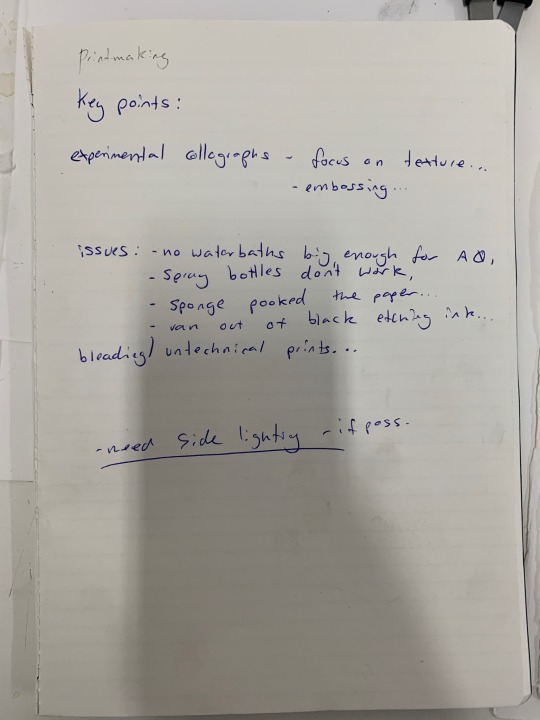 Printmaking
Key points:
experimental collographs - focus on texture...
- embossing...
issues: - no waterbaths big enough for A0,
- spray bottles don't work,
- sponge pooked the paper...
- ran out of black etching ink...
bleading/ untechnical prints...
- need side lighting - if poss.